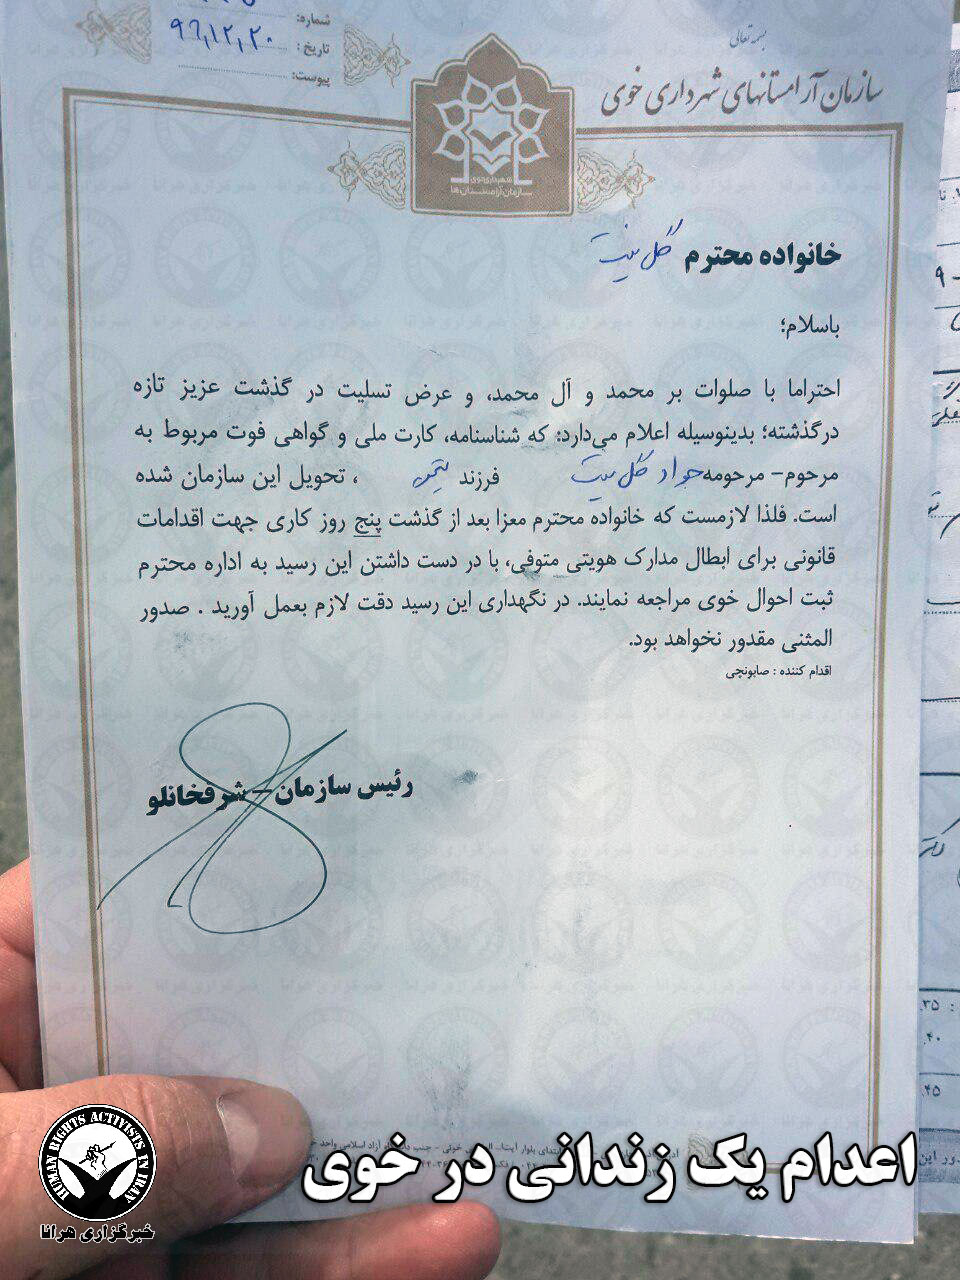 بسمه تعالی
سازمان آرامستانهای شهرداری خوی
شماره:
تاریخ: ۹۶,۱۲,۲۰
پیوست:
شهرداری خوی
سازمان آرامستان ها
خانواده محترم
باسلام؛
احتراما با صلوات بر محمد و آل محمد، و عرض تسلیت در گذشت عزیز تازه
درگذشته؛ بدینوسیله اعلام می‌دارد: که شناسنامه، کارت ملی و گواهی فوت مربوط به
مرحوم- مرحومه جواد فرزند ، تحویل این سازمان شده
است. فلذا لازمست که خانواده محترم معزا بعد از گذشت پنج روز کاری جهت اقدامات
قانونی برای ابطال مدارک هویتی متوفی، با در دست داشتن این رسید به اداره محترم
ثبت احوال خوی مراجعه نمایند. در نگهداری این رسید دقت لازم بعمل آورید . صدور
المثنی مقدور نخواهد بود.
اقدام کننده : صابونچی
رئیس سازمان - شرفخانلو
اعدام یک زندانی در خوی
HUMAN RIGHTS ACTIVISTS IN IRAN
خبرگزاری هرانا